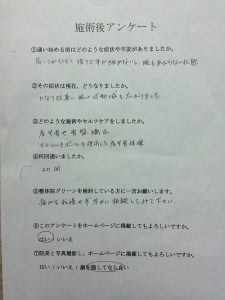 施術後アンケート
①通い始める前はどのような症状や不安がありましたか。
肩こりがひどく
②その症状は現在、どうなりましたか。
③どのような施術やセルフケアをしましたか。
肩甲骨や骨盤矯正
ストレッチポールを使用した肩甲骨体操
④何回通いましたか。
20回
⑤整体院グリーンを検討している方に一言お願いします。
悩みを我慢せず早めに相談してみて下さい
⑥このアンケートをホームページに掲載してもよろしいですか。
はい / いいえ
⑦院長と写真撮影し、ホームページに掲載してもよろしいですか。
はい / いいえ / 顔を隠してなら良い